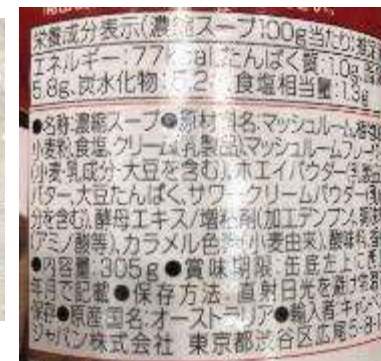 栄養成分表示(濃縮スープ100g当たり)推定
エネルギー:77kcal、たんぱく質:1.0g、
5.8g、炭水化物:5.2 食塩相当量:1.3g
●名称:濃縮スープ●原材料名:マッシュルーム、
小麦粉、食塩、クリーム(乳製品)、マッシュルームフレーバー
(小麦・乳成分・大豆を含む)、ホエイパウダー
バター、大豆たんぱく、サワークリームパウダー
分を含む)、酵母エキス/増粘剤(加工デンプン)、調味料
(アミノ酸等)、カラメル色素(小麦由来)、酸味料、
●内容量:305g●賞味期限:缶底左上に
年月で記載●保存方法:直射日光を避け
保存●原産国名:オーストラリア●輸入者:キャンベル
ジャパン株式会社 東京都渋谷区広尾5-8-